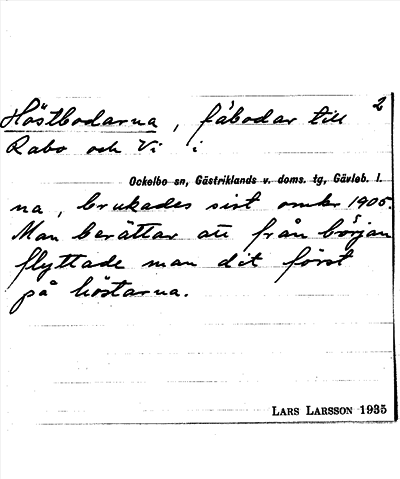 2
Höstbodarna, fäbodar till
Rabo och Vi i
Ockelbo sn, Gästriklands v. doms. tg, Gävleb. l.
na, brukades sist omkr 1905.
Man berättar att från början
flyttade man dit först
på höstarna.
LARS LARSSON 1935